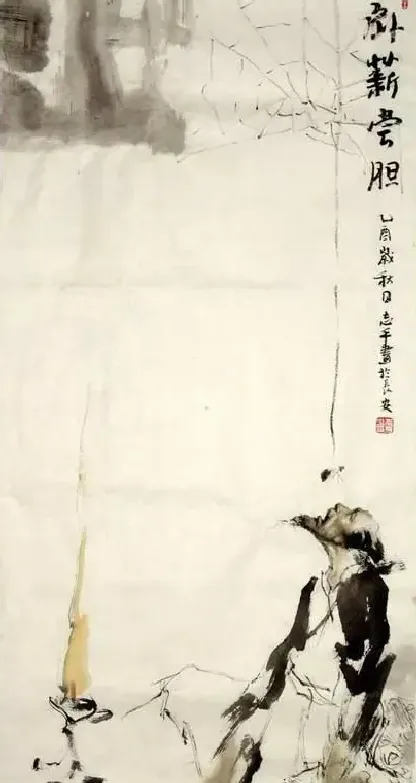 卧薪尝胆
乙酉岁秋日志平画於长安